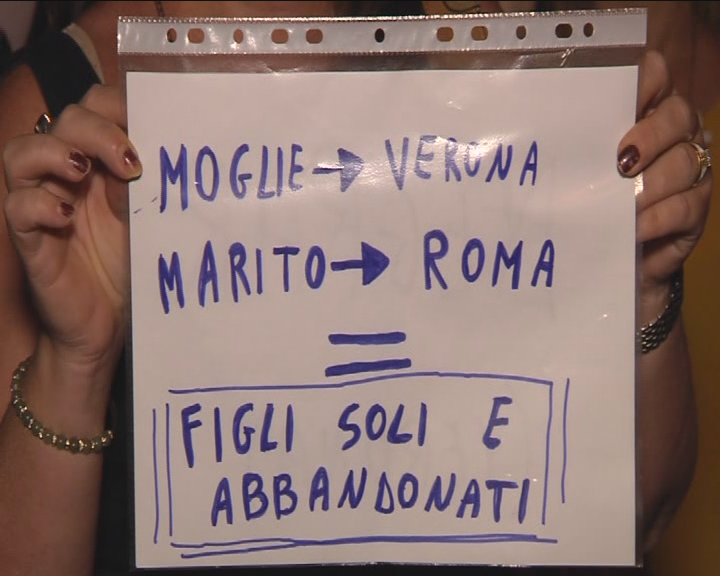 MOGLIE → VERONA
MARITO → ROMA
=
FIGLI SOLI E
ABBANDONATI